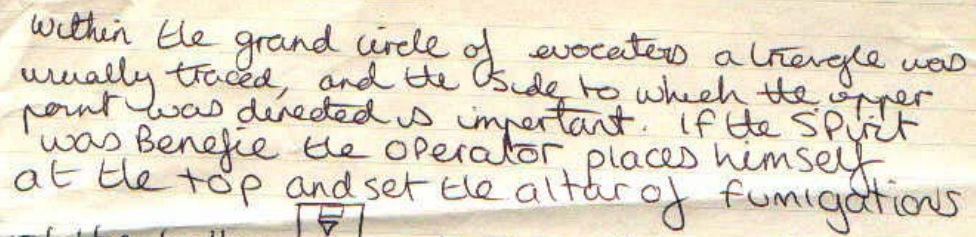 within the grand circle of evocaters a triangle was
usually traced, and the side to which the upper
point was directed is important. If the SPirit
was Benefie the OPerator places himself
at the top and set the altar of fumigations